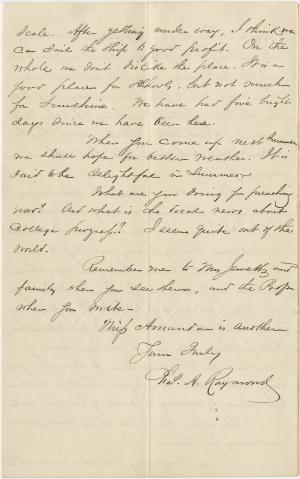 scale. After getting under way, I think we
can sail the ship to good profit. On the
whole we don't dislike the place. It is a
good place for schools, but not much
for sunshine. We have had five bright
days since we have been here.
When you come up next summer
we shall hope for better weather. It is
said to be delightful in summer.
What are you doing for preaching
now? And what is the local news about
College? I seem quite out of the
world.
Remember me to Mr. and
family when you see them, and the Profs
when you write -
Miss Amanda is another
Yours truly
Chas. A. Raymond